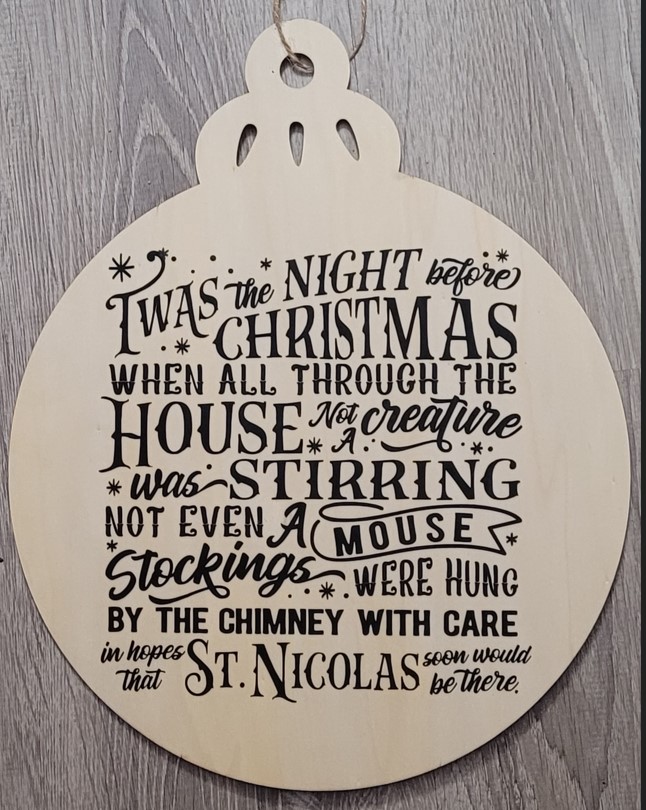 'TWAS the NIGHT before
CHRISTMAS
WHEN ALL THROUGH THE
HOUSE Not A creature
was STIRRING
NOT EVEN A MOUSE
Stockings WERE HUNG
BY THE CHIMNEY WITH CARE
in hopes that ST. NICOLAS soon would be there.